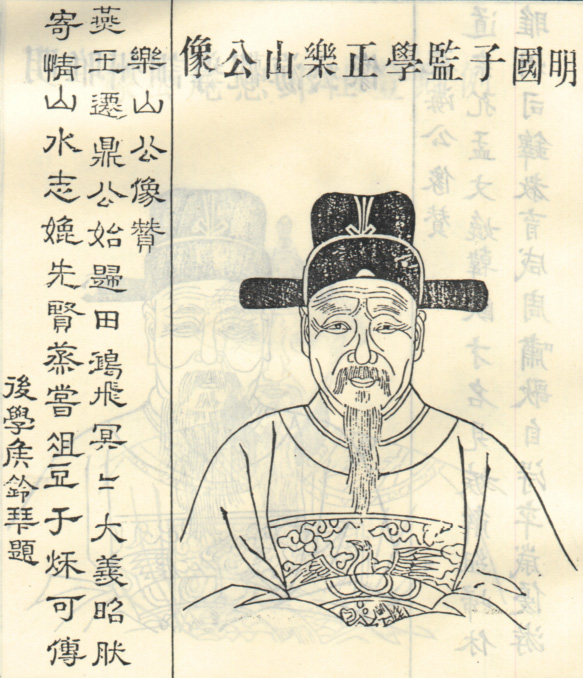 明國子監學正樂山公像
樂山公像贊
燕王遷鼎公始歸田鴻飛冥〻大義昭肰
寄情山水志媲先賢蒸嘗俎豆千秌可傳
後學矦鈴琹題